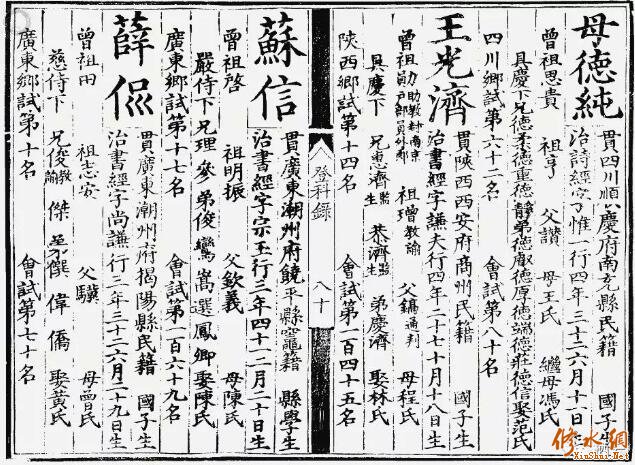 母德純
貫四川順慶府南充縣民籍 國子生
治詩經字惟一行四年三十二六月十一日生
曾祖思貴 祖亨 父讚 母王氏 繼母馮氏
具慶下兄德柔德重德靜弟德 德厚德端德莊德信娶范氏
四川鄉試第六十二名 會試第八十名
王光濟
貫陝西西安府商州民籍 國子生
治書經字謙夫行四年二十七十月十八日生
曾祖勛助教封南京戶部員外郎 祖璔教諭 父鎬通判 母程氏
具慶下 兄惠濟監生 恭濟監生 弟慶濟 娶林氏
陝西鄉試第十四名 會試第二百四十五名
登科錄 八十
蘇信
貫廣東潮州府饒平縣竈籍 縣學生
治書經字宗玉行三年四十二月二十日生
曾祖啓 祖明振 父欽義 母陳氏
嚴侍下兄理參弟俊鸞嵩選鳳卿娶陳氏
廣東鄉試第十七名 會試第一百六十九名
薛侃
貫廣東潮州府揭陽縣民籍 國子生
治書經字尚謙行三年三十二六月二十九日生
曾祖田 祖志安 父驥 母曾氏
慈侍下 兄俊教諭 傑 弟僎 偉 僑 娶黃氏
廣東鄉試第十名 會試第七十名
修水網
XiuShui.Net